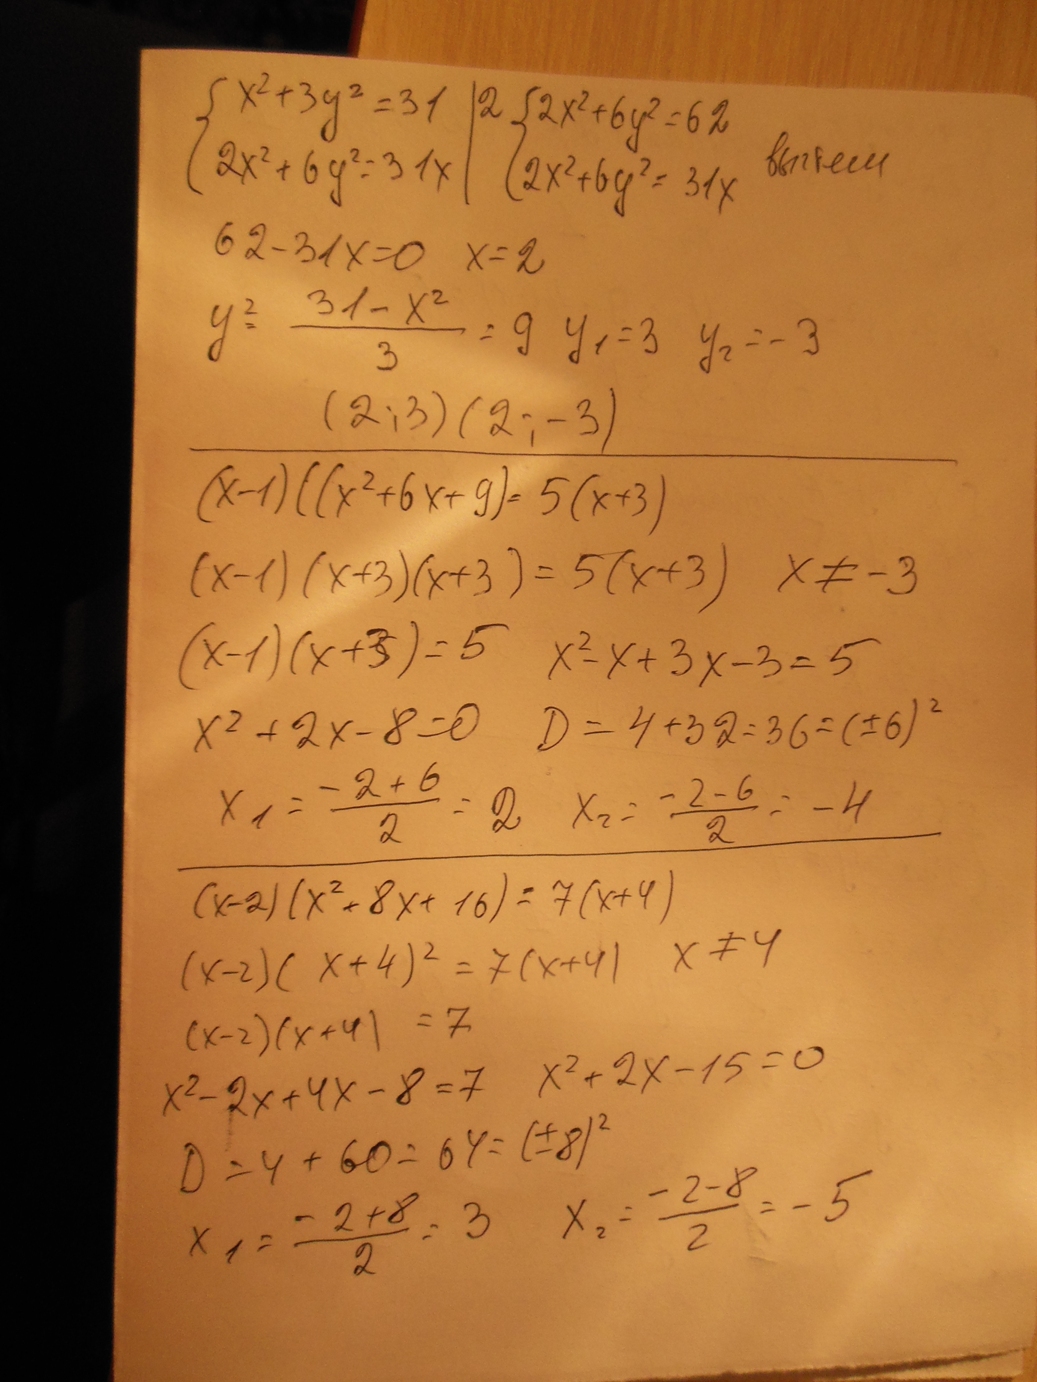 { x²+3y²=31 | 2 { 2x²+6y²=62
{ 2x²+6y²=31x | { 2x²+6y²=31x вычтем
62-31x=0 x=2
y²= (31-x²)/3 = 9 y₁=3 y₂=-3
(2;3) (2;-3)
(x-1)((x²+6x+9)=5(x+3)
(x-1)(x+3)(x+3)=5(x+3) x≠-3
(x-1)(x+3)=5 x²-x+3x-3=5
x²+2x-8=0 D=4+32=36=(±6)²
x₁=(-2+6)/2=2 x₂=(-2-6)/2=-4
(x-2)(x²+8x+16)=7(x+4)
(x-2)(x+4)²=7(x+4) x≠4
(x-2)(x+4)=7
x²-2x+4x-8=7 x²+2x-15=0
D=4+60=64=(±8)²
x₁=(-2+8)/2=3 x₂=(-2-8)/2=-5